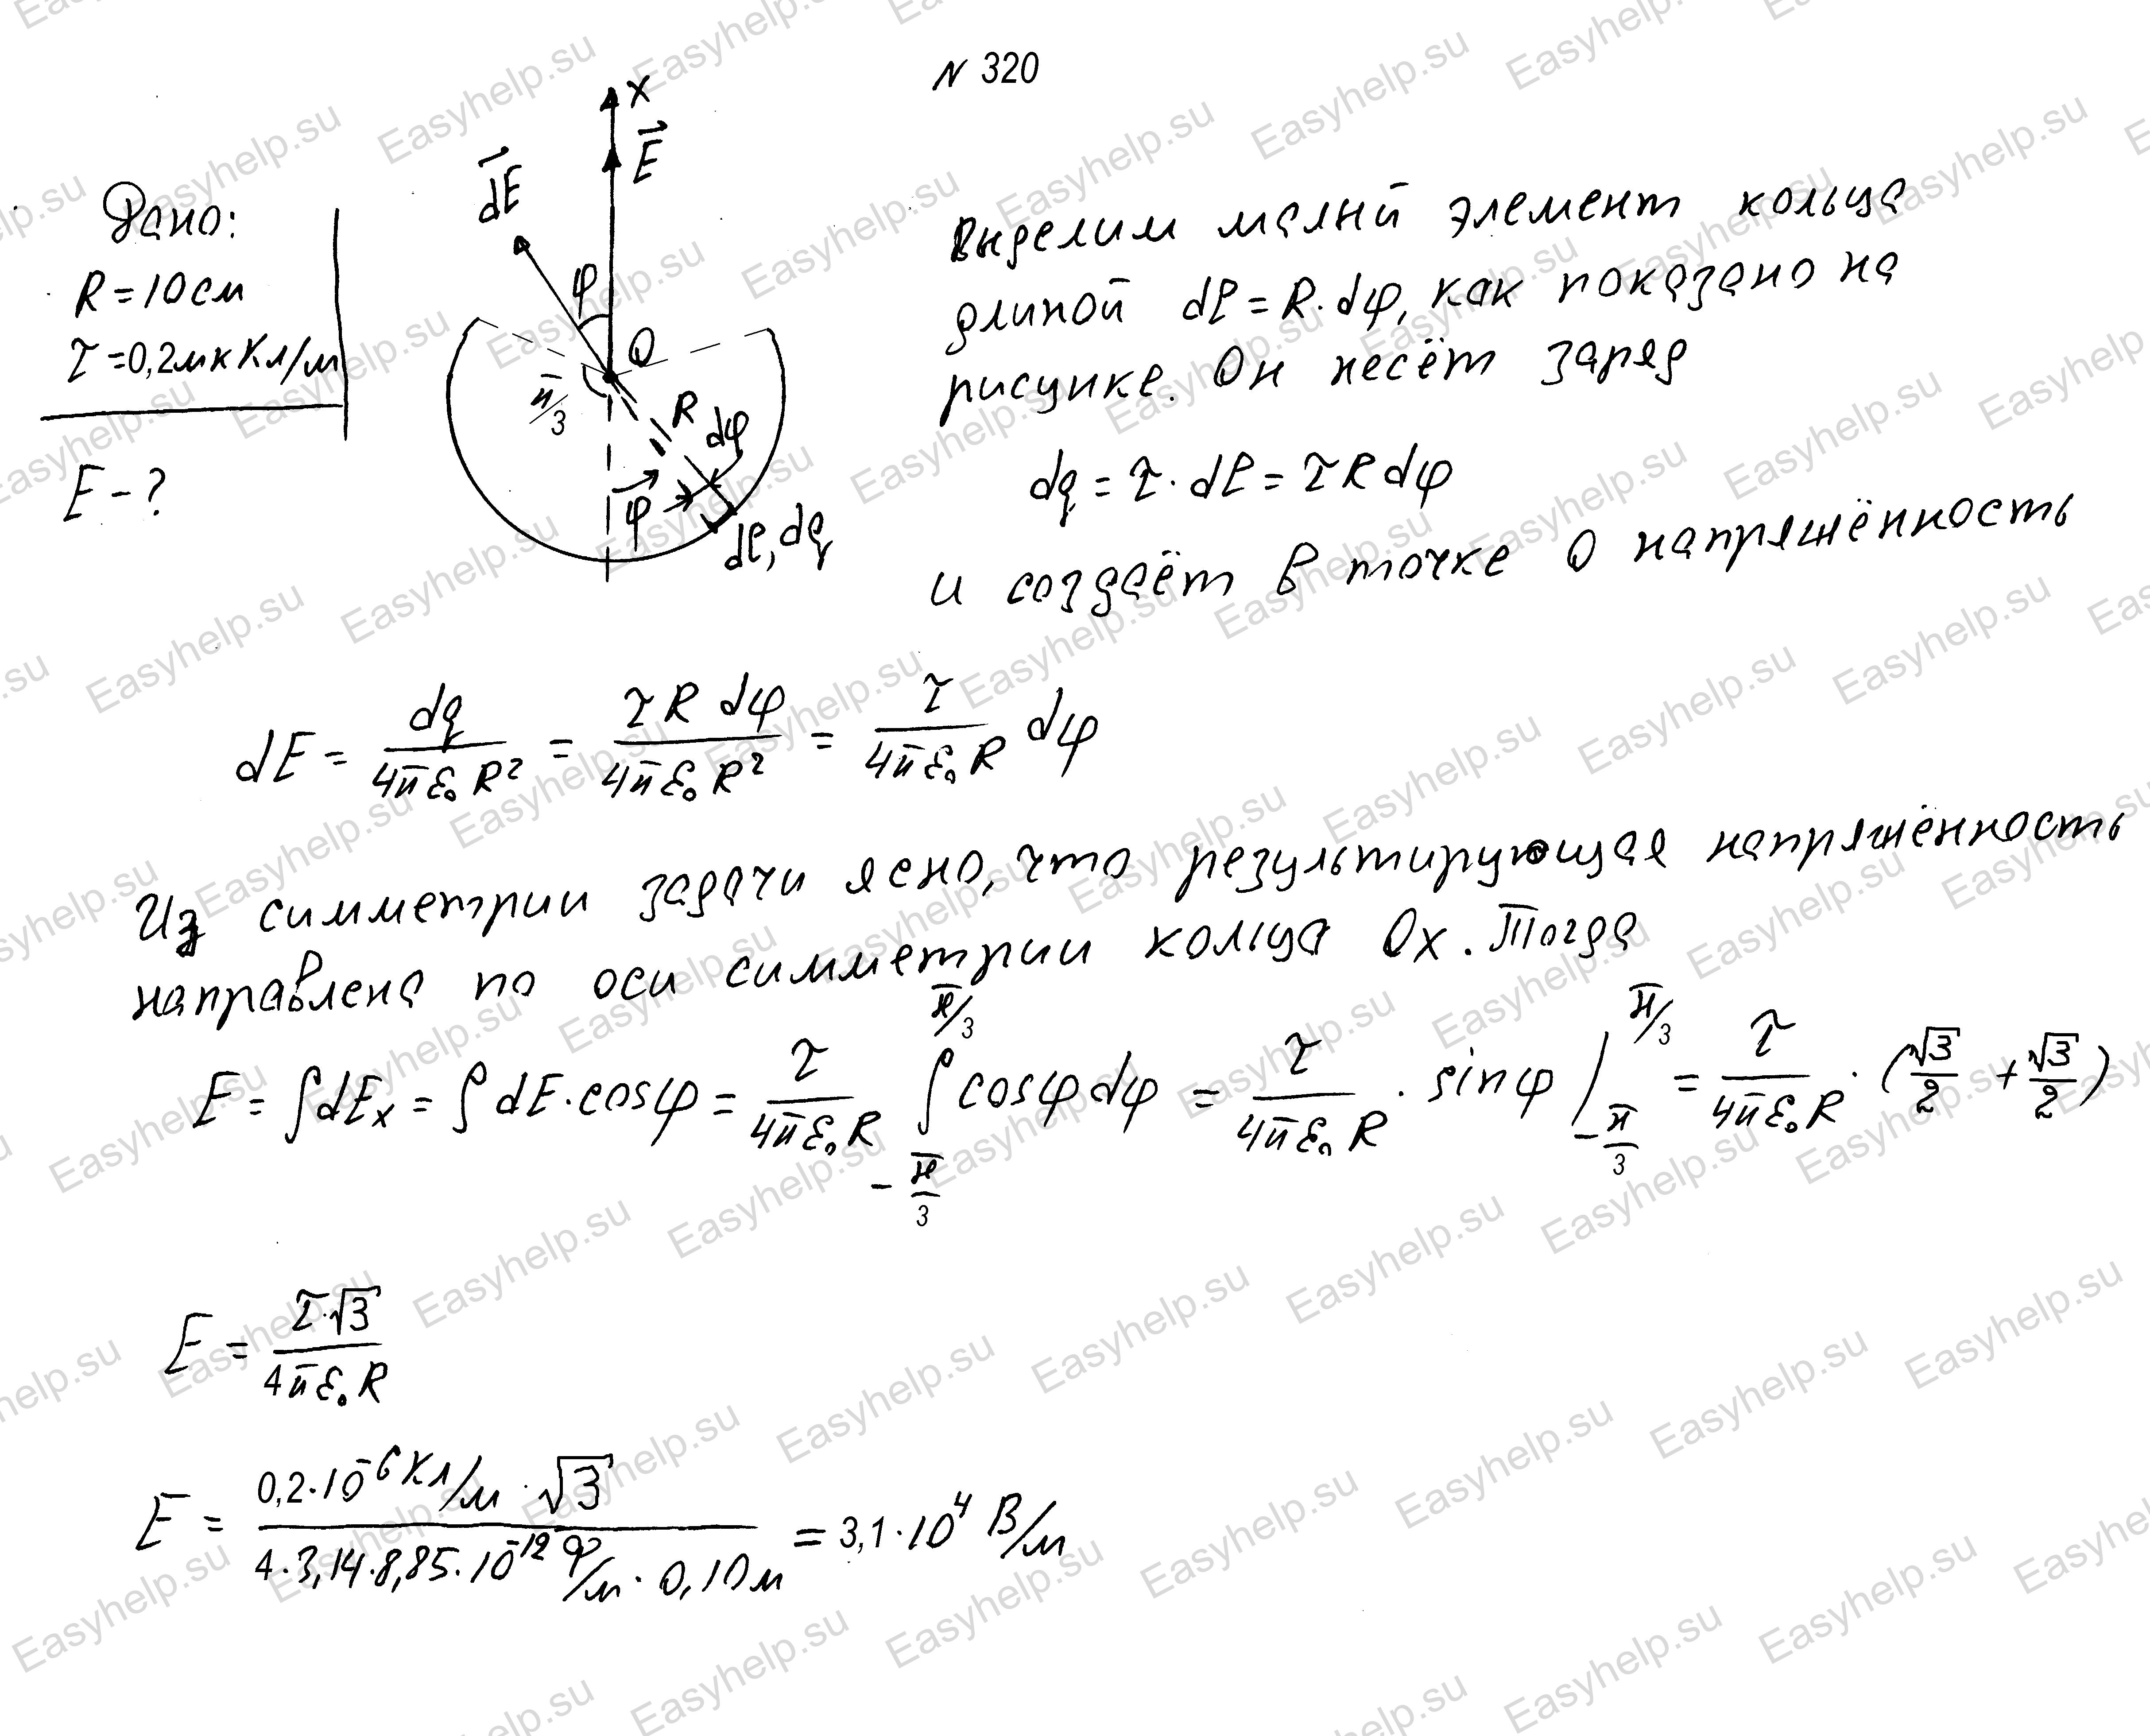 N 320
Дано:
R = 10 см
τ = 0,2 мкКл/м
E - ?
x
E
dE
φ
O
π/3
R
dφ
φ
dℓ, dq
Выделим малый элемент кольца
длиной dℓ = R·dφ, как показано на
рисунке. Он несёт заряд
dq = τ·dℓ = τRdφ
и создаёт в точке O напряжённость
dE = dq/(4πε₀R²) = τRdφ/(4πε₀R²) = τ/(4πε₀R) dφ
Из симметрии задачи ясно, что результирующая напряжённость
направлена по оси симметрии кольца Ox. Тогда
E = ∫dEₓ = ∫dE·cosφ = τ/(4πε₀R) ∫_{-π/3}^{π/3} cosφdφ = τ/(4πε₀R) · sinφ |_{-π/3}^{π/3} = τ/(4πε₀R) · (√3/2 + √3/2)
E = τ·√3/(4πε₀R)
E = (0,2·10⁻⁶ Кл/м · √3)/(4·3,14·8,85·10⁻¹² Ф/м · 0,10м) = 3,1·10⁴ В/м
Easyhelp.su